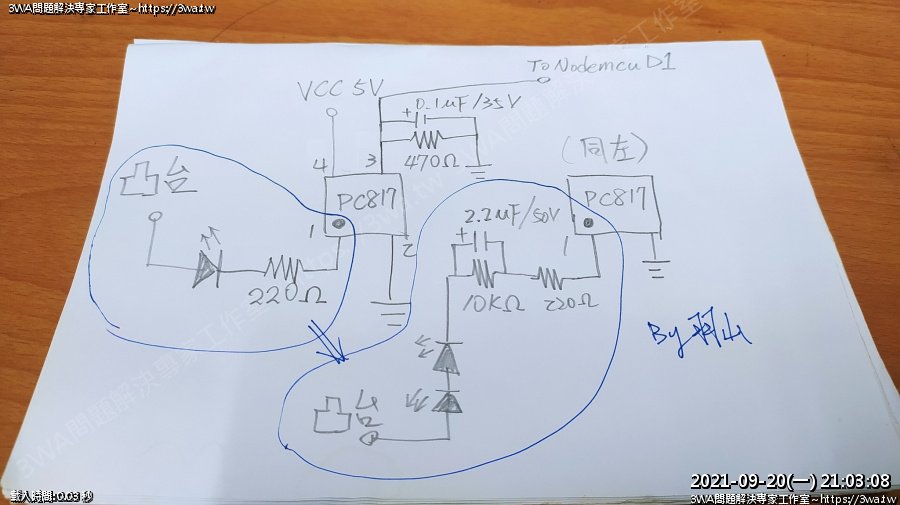 3WA問題解決專家工作室~https://3wa.tw
To Nodemcu D1
VCC 5V
+ 0.1uF/35V
4
3
470Ω
(同左)
凸台
PC817
PC817
1
2
2.2uF/50V
+
1
220Ω
10KΩ
220Ω
By 羽山
凸台
2021-09-20(一) 21:03:08
載入時間: 0.03 秒
3WA問題解決專家工作室~https://3wa.tw